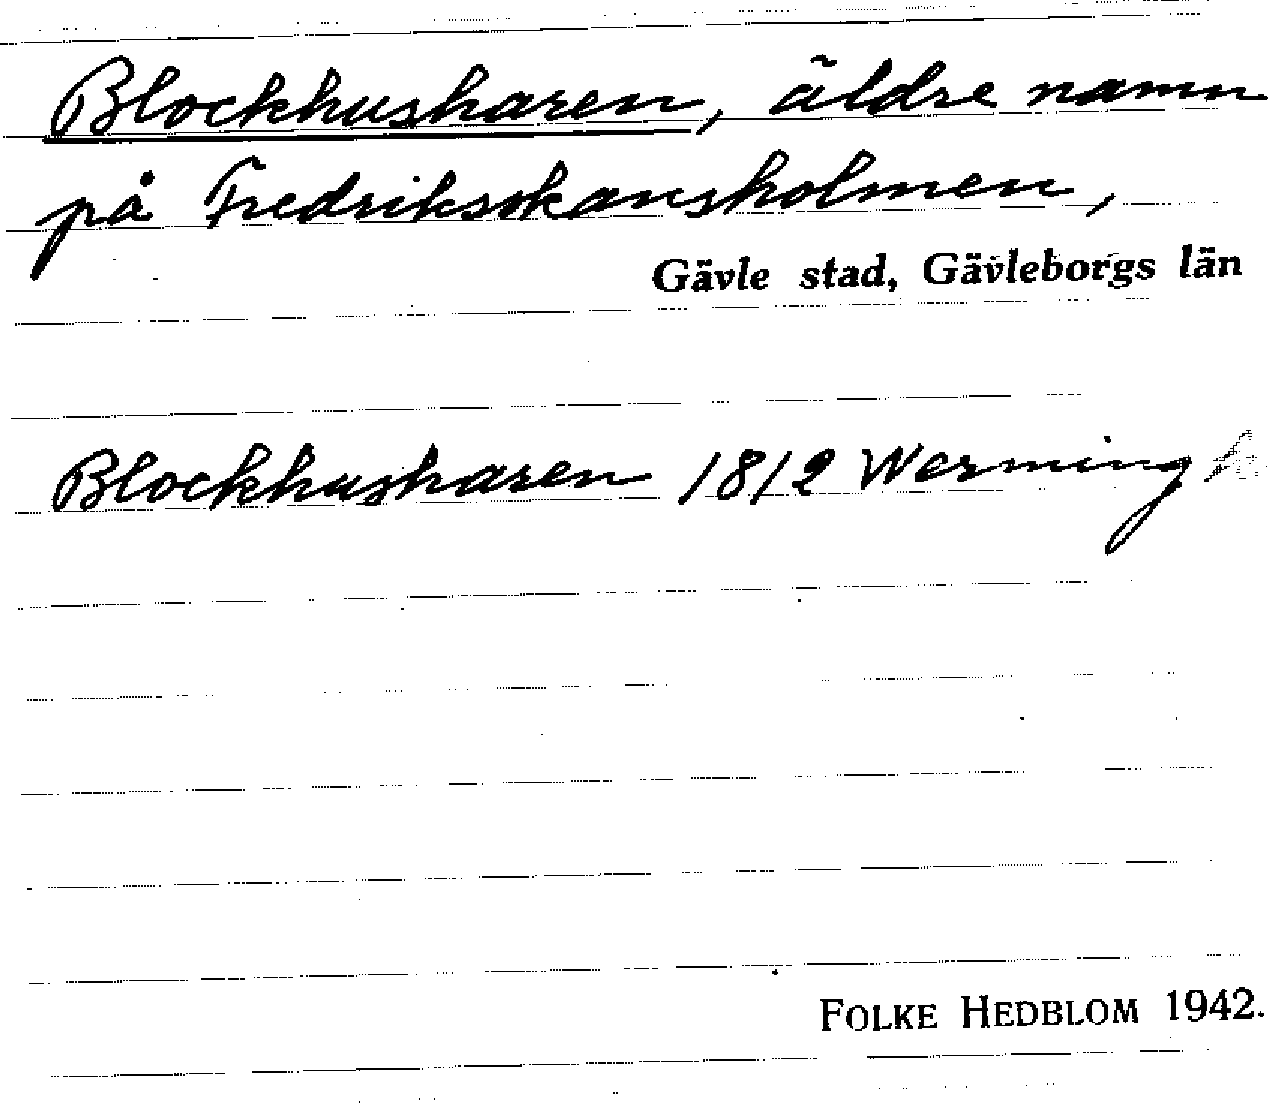 Blockhusharen, äldre namn
på Fredriksskansholmen,
Gävle stad, Gävleborgs län
Blockhusharen 1812 Werming
FOLKE HEDBLOM 1942.